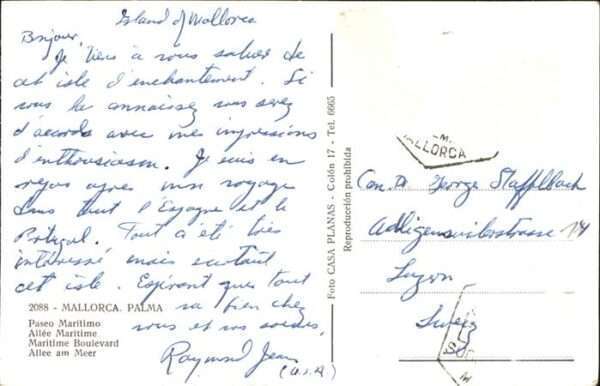 Island of Mallorca
Bonjour,
Je viens à vous saluer de
cet isle d'enchantement. Si
vous le connaissez vous serez
d'accords avec mes impressions
d'enthousiasm. Je suis en
repos apres mon voyage
dans tout l'Espagne et le
Portugal. Tout a été très
intéressé mais surtout
cet isle. Espérant que tout
va bien chez
vous et vos soldes,
Raymond Jean
(U.S.A.)
2088 - MALLORCA. PALMA
Paseo Marítimo
Allée Maritime
Maritime Boulevard
Allee am Meer
Foto CASA PLANAS - Colón 17 - Tel. 6665
Reproducción prohibida
MALLORCA
George Staffelbach
Adligenswilerstrasse 14
Luzern
Sweiz